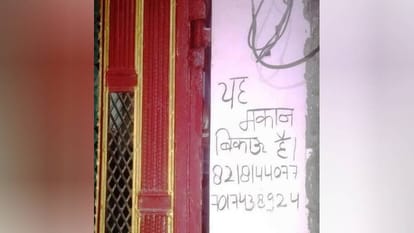 यह
मकान
बिकाऊ है।
8218144077
7017438924